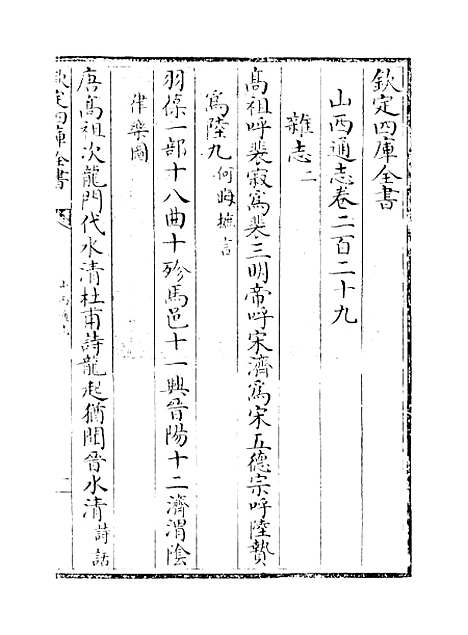 欽定四庫全書
山西通志卷二百二十九
雜志二
髙祖呼裴寂為裴三明帝呼宋濟為宋五德宗呼陸贄
為陸九何晦摭言
羽葆一部十八曲十殄馬邑十一興晉陽十二濟渭陰
律樂圖
唐髙祖次龍門代水清杜甫詩龍起猶聞晉水清詩話
欽定四庫全書